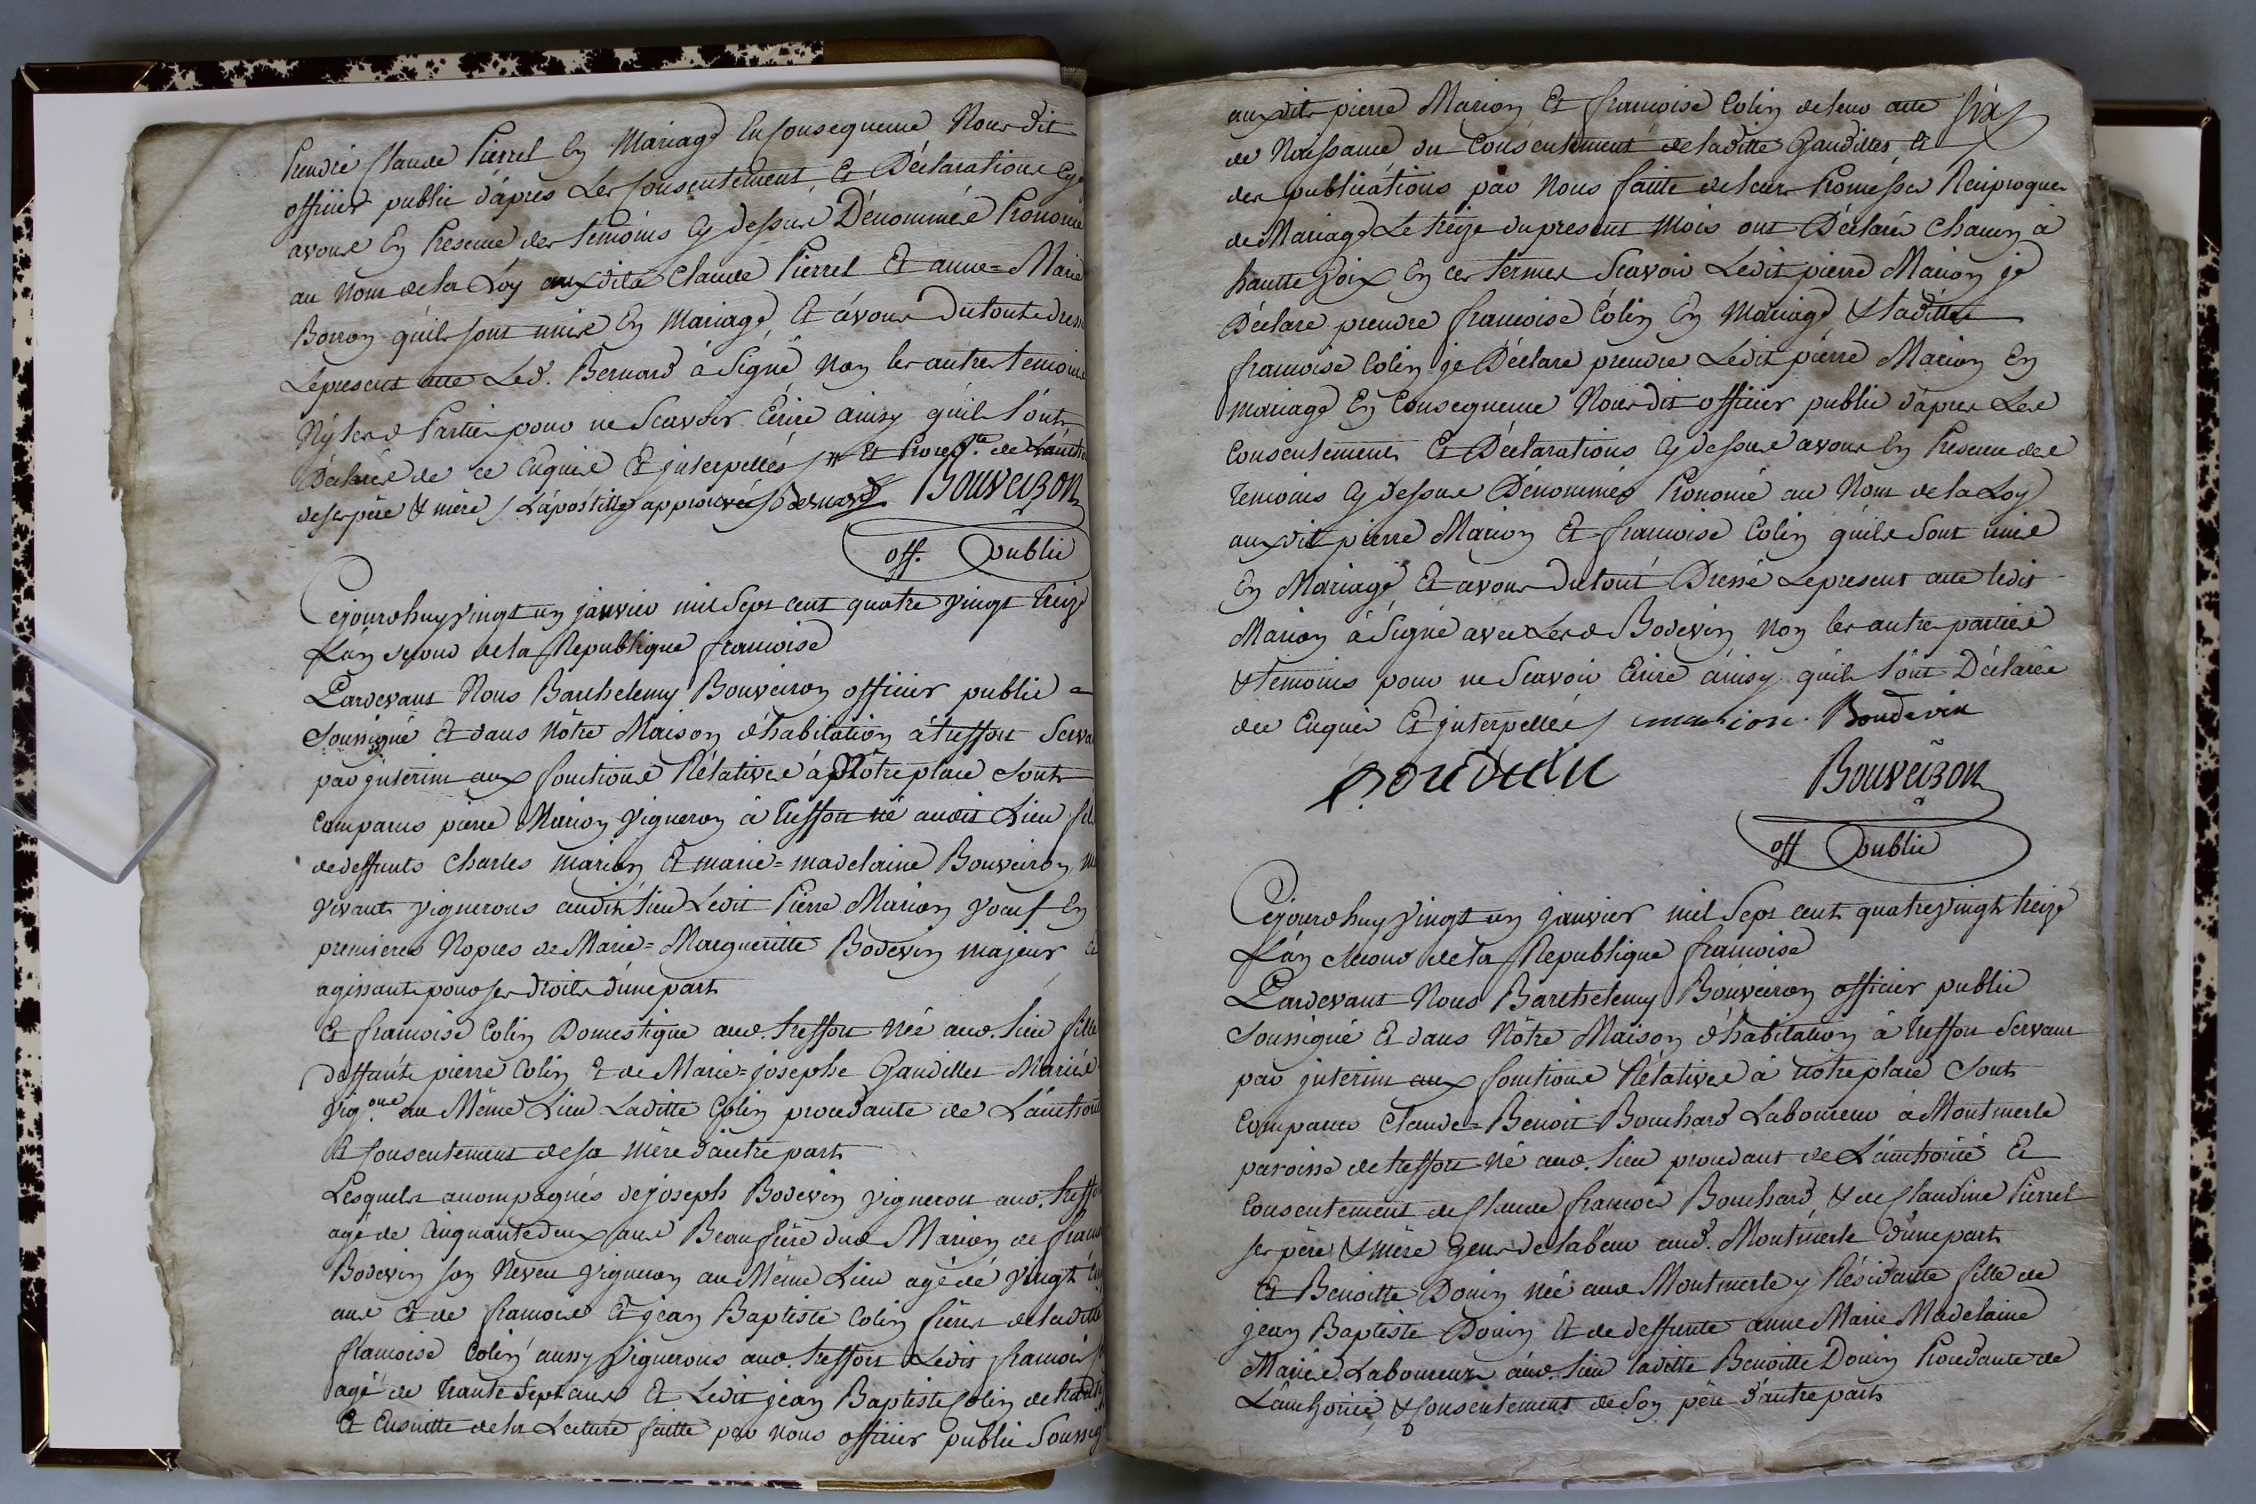 Prendre Claude Pierrel En Mariage En Consequence Nous dit
officier public d'apres Les Consentement Et Déclarations Cy
avons En Presence des temoins Cy dessus Dénommée Prononcé
au Nom de la Loy auxdits Claude Pierrel Et anne=Marie
Borron qu'ils sont unis En Mariage Et avons Du tout dressé
Le present acte Led. Bernard à Signé Non les autres temoins
Ny Lesd Parties pour ne Scavoir Ecrire ainsy qu'ils l'ont
Déclarés de ce Enquis Et interpellés / # Et Proced.te de L'autho
de ses père & mère / L'apostille approuvée / Bernard Bouveiron
off. public
Cejourdhuy Vingt un janvier mil Sept cent quatre Vingt treize
L'an Second de la Republique francoise
Pardevant Nous Barthelemy Bouveiron officier public
Soussigné Et dans Nôtre Maison d'habitation à treffort Serva
par interim aux fonctions Rélatives à Nôtre place Sont
Comparus pierre Marion Vigneron à treffort né audit Lieu fils
de deffunts Charles Marion Et marie=madelaine Bouveiron
Vivants Vignerons audit Lieu Ledit Pierre Marion Voeuf En
premieres Nopces de Marie=Margueritte Bodevin majeur
agissant pour ses droits d'une part
Et francoise Colin Domestique aud. treffort Née aud. Lieu fille
Deffunts pierre Colin Et de Marie=josephe Gandillet Mariés
Vig.ons au Même Lieu Laditte Colin procedante de L'authorité
Et Consentement de sa mère d'autre part
Lesquels accompagnés de joseph Bodevin Vigneron aud. treffo
agé de Cinquante deux ans Beaufrère dud Marion de franc
Bodevin son Neveu Vigneron au Même Lieu agé de Vingt
ans Et de francois Et jean Baptiste Colin frères de laditte
francoise Colin aussy Vignerons aud. treffort Ledit francois
agé de trante Sept ans Et Ledit jean Baptiste Colin de
Et Ensuitte de la Lecture faitte par nous officier public Soussig
auxdits pierre Marion Et francoise Colin de leur acte Six
de Naissance du Consentement de laditte Gandillet Et
des publications par Nous faitte de leurs Promesses Reciproques
de Mariage Le treize du present Mois ont Déclaré Chacun à
hautte Voix En ces termes Scavoir Ledit pierre Marion je
Déclare prendre francoise Colin En Mariage & laditte
francoise Colin je Déclare prendre Ledit pierre Marion En
mariage En Consequence Nous dit officier public d'apres Les
Consentements Et Déclarations Cy dessus avons En Presence des
temoins Cy dessus Dénommés Prononcé au Nom de la Loy
auxdit pierre Marion Et francoise Colin qu'ils Sont unis
En Mariage Et avons Du tout Dressé Le present acte Ledit
Marion à Signé avec Lesd Bodevin Non les autre parties
& temoins pour ne Scavoir Ecrire ainsy qu'ils l'ont Déclarés
de Enquis Et interpellés / marion Boudevin
Bouveiron
off public
Cejourdhuy Vingt un janvier mil Sept cent quatre Vingt treize
L'an Second de la Republique francoise
Pardevant Nous Barthelemy Bouveiron officier public
Soussigné Et dans Nôtre Maison d'habitation à treffort Servant
par interim aux fonctions Rélatives à nôtre place Sont
Comparus Claude=Benoit Bouchard Laboureur à Montmerle
paroisse de treffort Né aud. Lieu procedant de L'authorité Et
Consentement de Claude francois Bouchard & de Claudine Pierrel
ses père & mère Gens de labeur aud. Montmerle d'une part
Et Benoitte Donin Née aud Montmerle y Résidante fille de
jean Baptiste Donin Et de deffunte anne Marie Madelaine
Mariés Laboureurs aud. Lieu laditte Benoitte Donin Procedante de
L'authorité & Consentement de Son père d'autre part